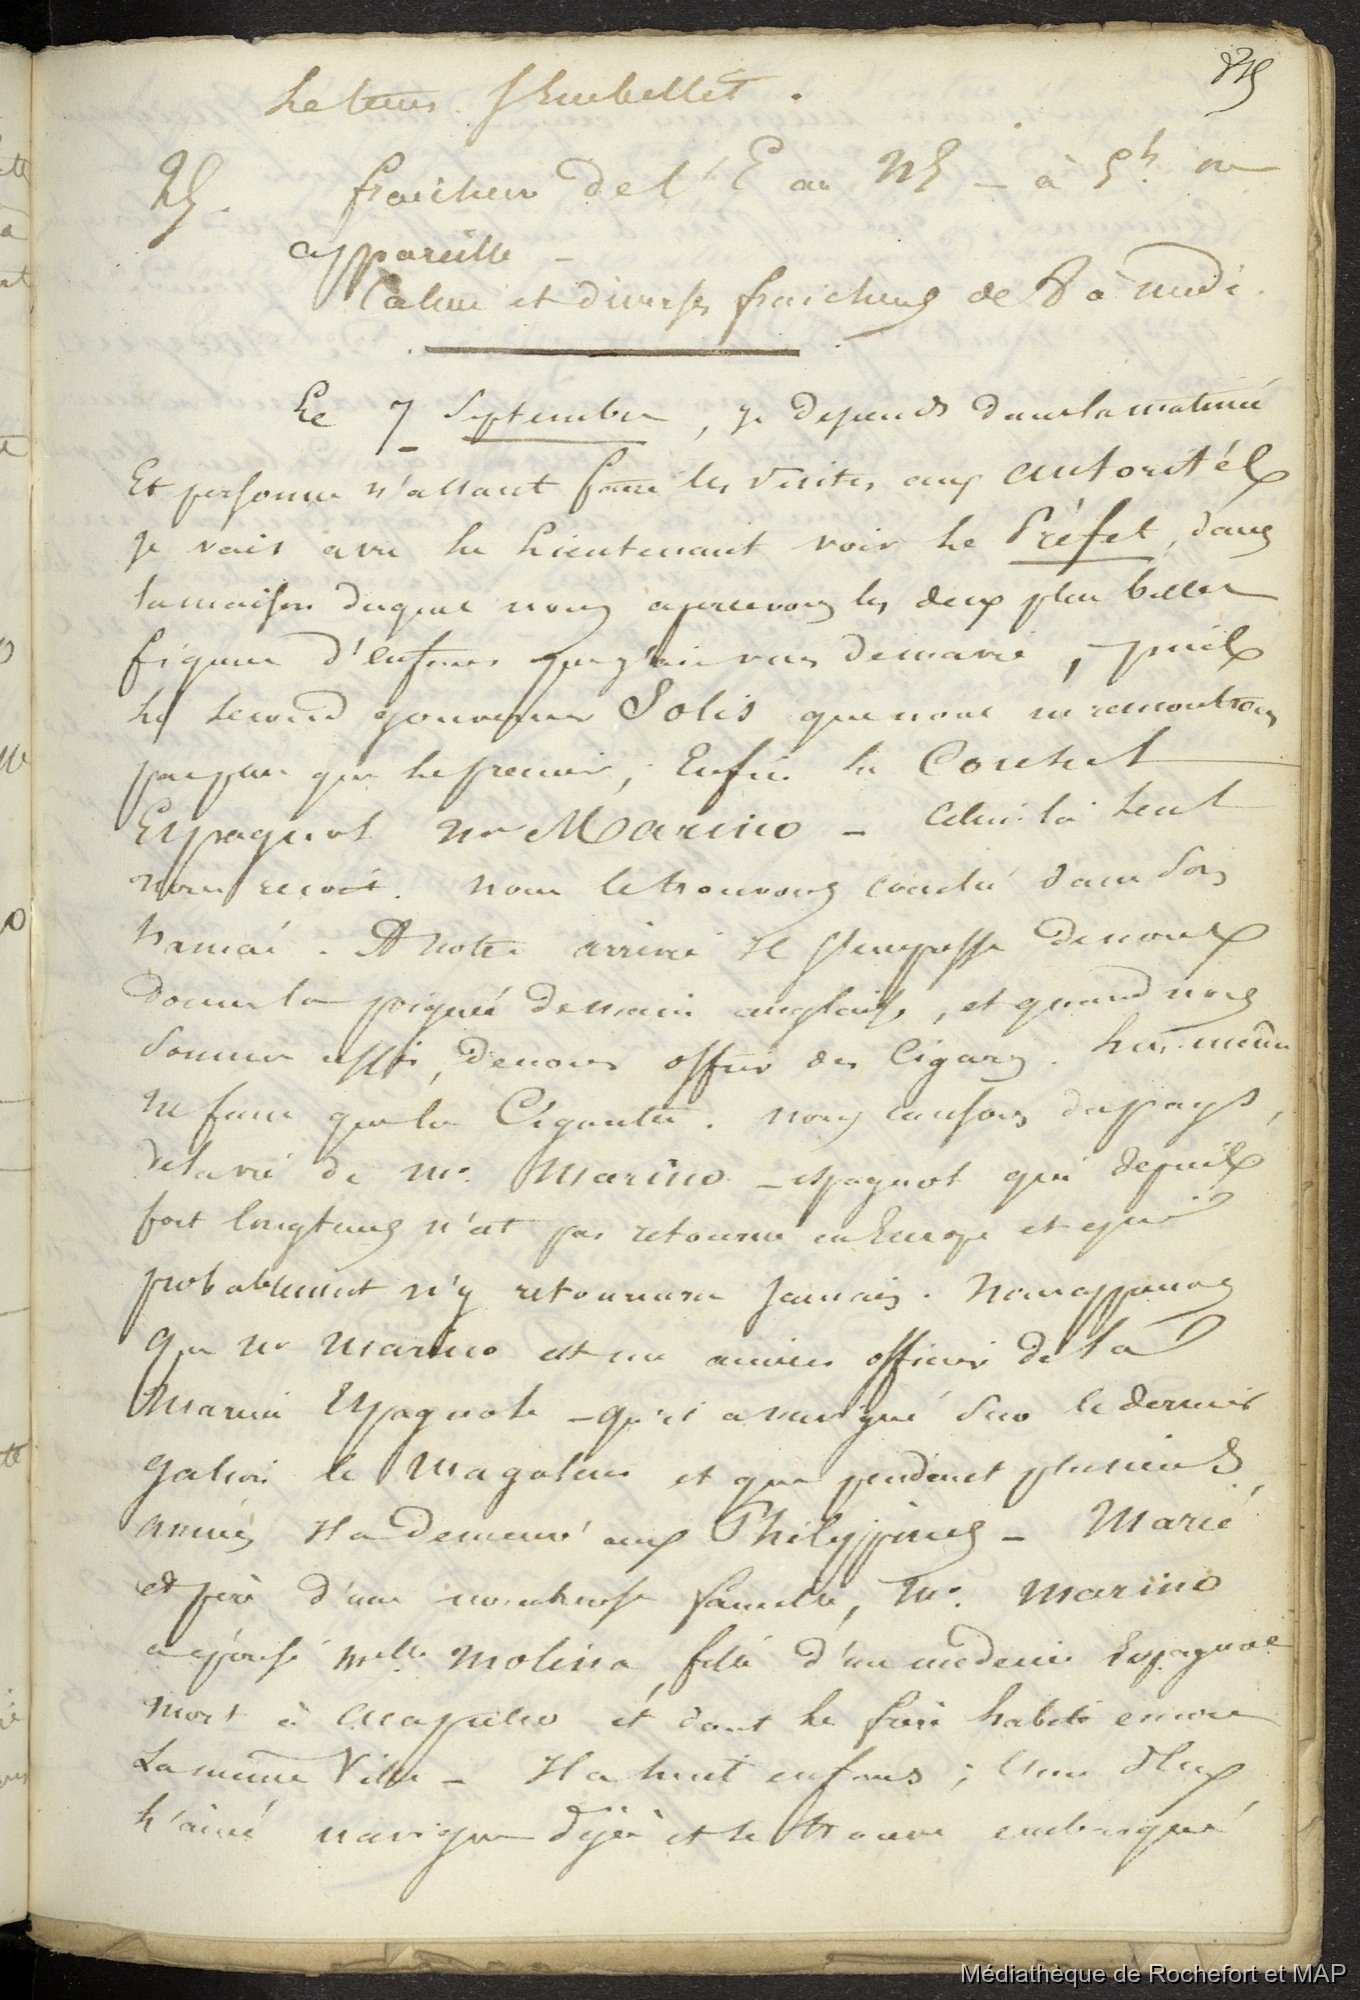 Le temps s'embellit.
25. fraicheur de l'E au NE – à 5h. on
appareille –
Calme et diverses fraicheurs de 8 à midi.
Le 7 Septembre, je descends dans la matinée
Et personne n'allant faire les visites aux autorités
je vais avec le Lieutenant voir le Préfet, dans
la maison duquel nous apercevons les deux plus belles
figures d'enfans que j'aie vus de ma vie, puis
le second gouverneur Solis que nous ne rencontrons
pas plus que le premier; Enfin le Consul
Espagnol Mr Marino – Celui-là seul
nous reçoit. Nous le trouvons couché dans son
hamac. A notre arrivée Il s'empresse de nous
donner la poignée de main anglaise, et quand nous
sommes assis, de nous offrir des Cigares. Lui-même
ne fume que la Cigarette. Nous causons du pays,
de la vie de Mr. Marino – espagnol qui depuis
fort longtems n'est pas retourné en Europe et qui
probablement n'y retournera jamais. Nous apprenons
que Mr Marino est un ancien officier de la
Marine Espagnole – qu'il a navigué sur le dernier
galion le Magellan et que pendant plusieurs
années Il a demeuré aux Philippines – Marié
et père d'une nombreuse famille, Mr. Marino
a épousé Melle Molina, fille d'un médecin Espagnol
mort à Acapulco et dont le frère habite encore
La même Ville – Il a huit enfans; l'un d'Eux
l'ainé navigue déjà et se trouve embarqué
Médiathèque de Rochefort et MAP